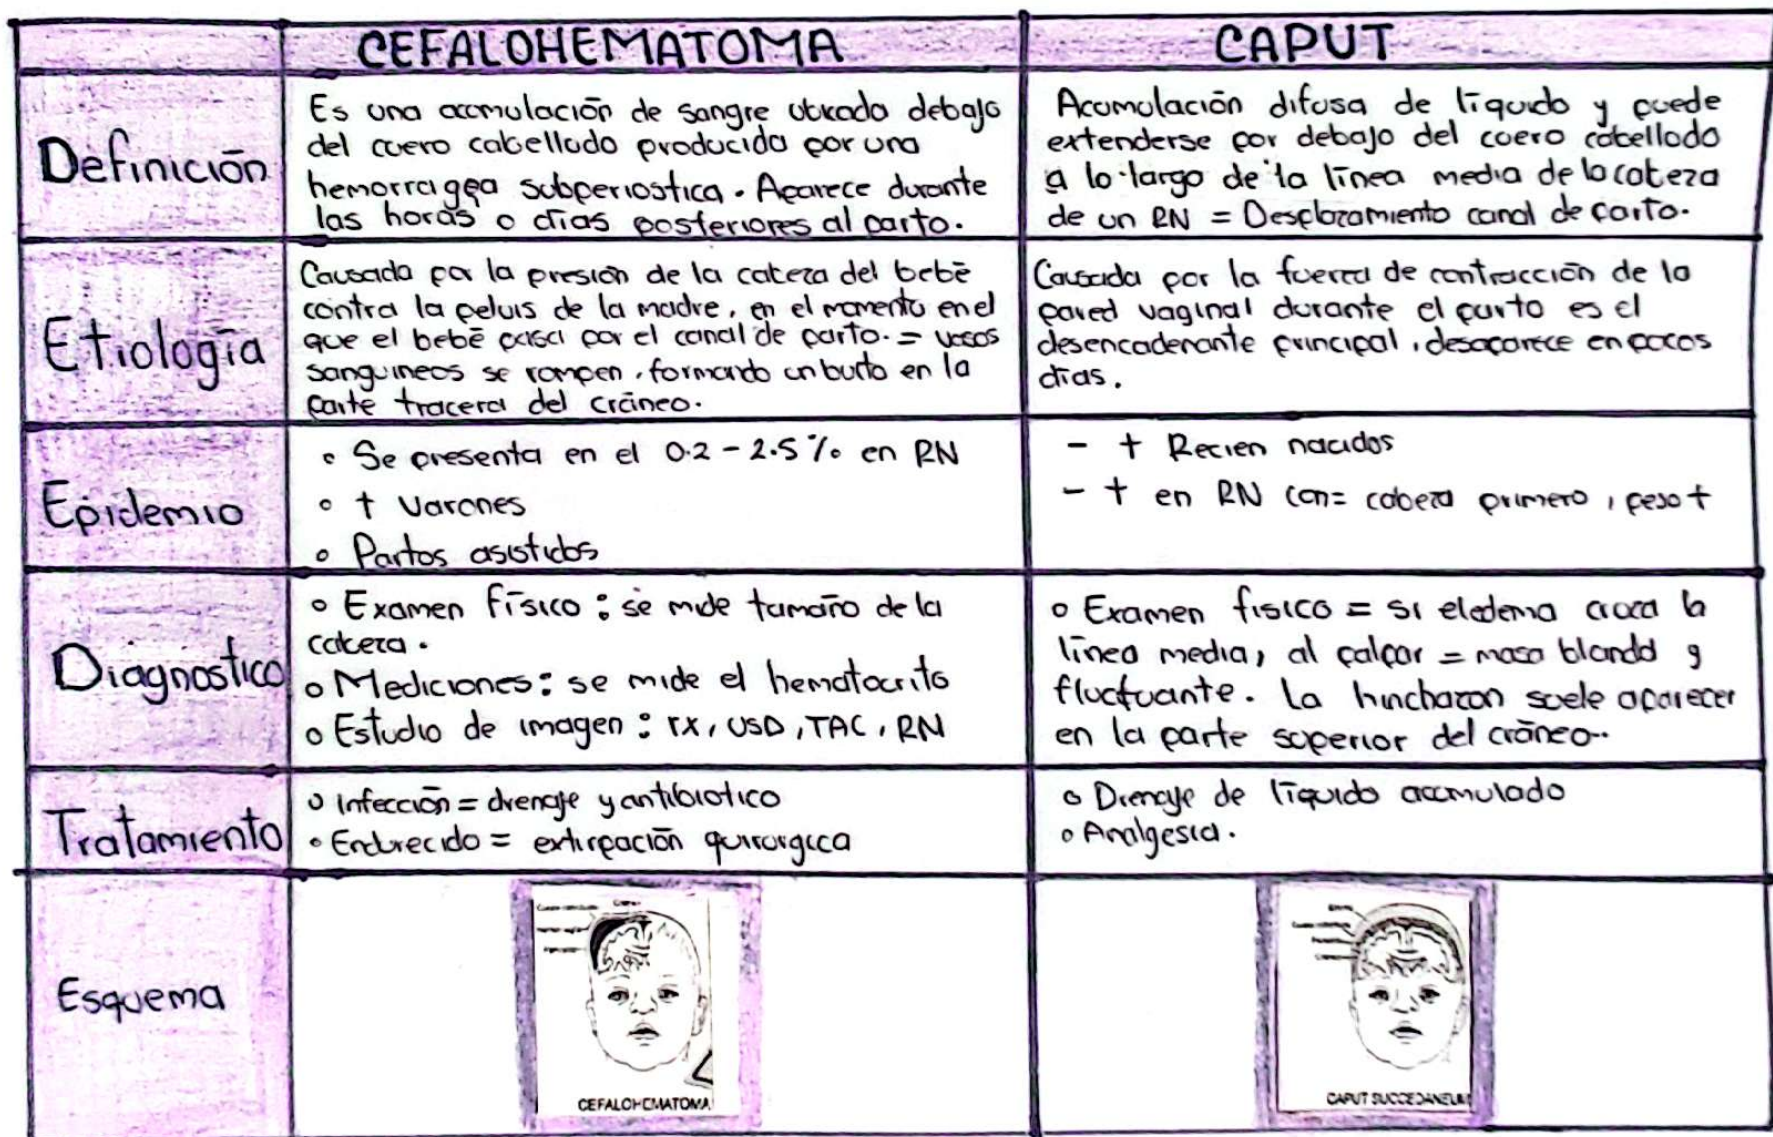 CEFALOHEMATOMA
CAPUT
Definición
Es una acumulación de sangre ubicada debajo
del cuero cabelludo producida por una
hemorragea subperiostica. Aparece durante
las horas o días posteriores al parto.
Acumulación difusa de líquido y puede
extenderse por debajo del cuero cabelludo
a lo largo de la línea media de la cabeza
de un RN = Desplazamiento canal de parto.
Etiología
Causada por la presión de la cabeza del bebé
contra la pelvis de la madre, en el momento en el
que el bebé pasa por el canal de parto. = vasos
sanguineos se rompen, formando un bulto en la
parte tracera del cráneo.
Causada por la fuerza de contracción de la
pared vaginal durante el parto es el
desencadenante principal, desaparece en pocos
días.
Epidemio
• Se presenta en el 0.2 - 2.5 % en RN
• + Varones
• Partos asistidos
- + Recien nacidos
- + en RN con= cabeza primero, peso +
Diagnostico
• Examen físico: se mide tamaño de la
cabeza.
• Mediciones: se mide el hematocrito
• Estudio de imagen: rx, USD, TAC, RN
• Examen fisico = si el edema cruza la
línea media, al palpar = masa blanda y
fluctuante. La hinchazon suele aparecer
en la parte superior del cráneo..
Tratamiento
• Infección = drenaje y antibiotico
• Endurecido = extirpación quirurgica
• Drenaje de líquido acumulado
• Analgesia.
Esquema
CEFALOHEMATOMA
CAPUT SUCCEDANEUM